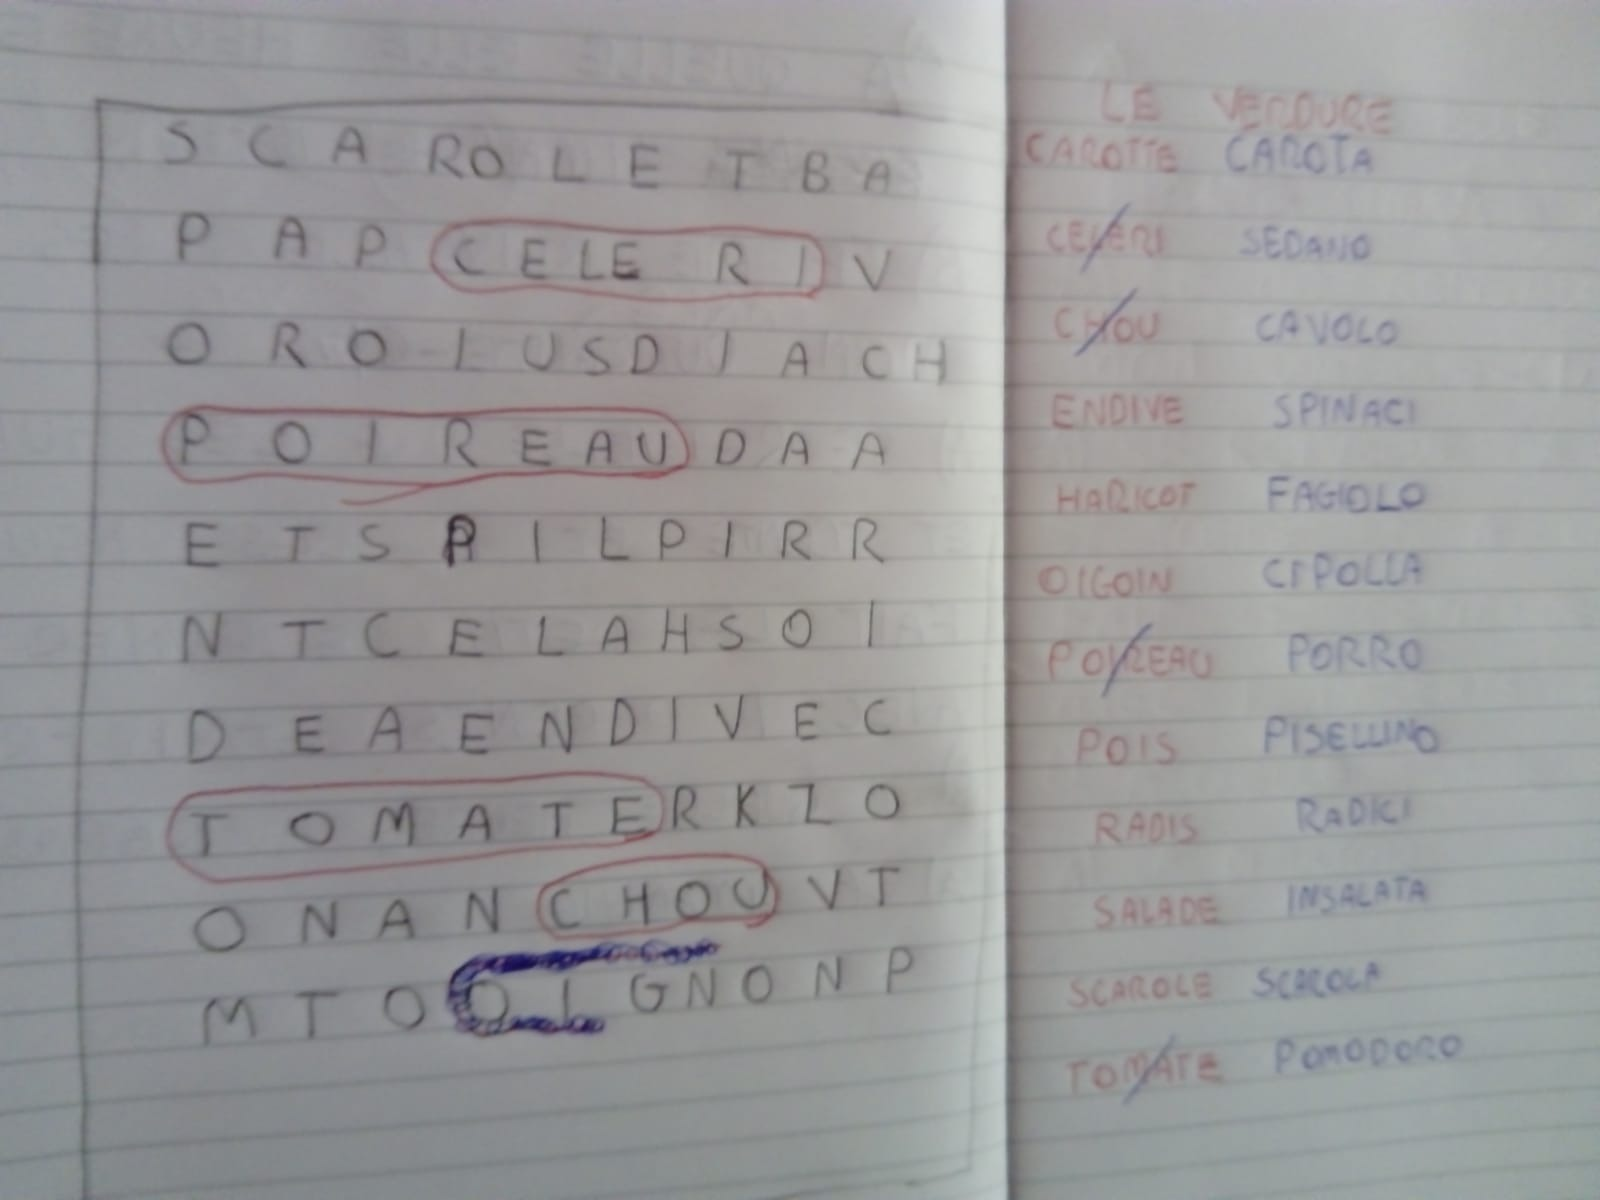 S C A R O L E T B A
P A P C E L E R I V
O R O I U S D I A C H
P O I R E A U D A A
E T S P I L P I R R
N T C E L A H S O I
D E A E N D I V E C
T O M A T E R K Z O
O N A N C H O U V T
M T O O I G N O N P
LE VERDURE
CAROTTE CAROTA
CELERI SEDANO
CHOU CAVOLO
ENDIVE SPINACI
HARICOT FAGIOLO
OIGOIN CIPOLLA
POIREAU PORRO
POIS PISELLINO
RADIS RADICI
SALADE INSALATA
SCAROLE SCAROLA
TOMATE POMODORO